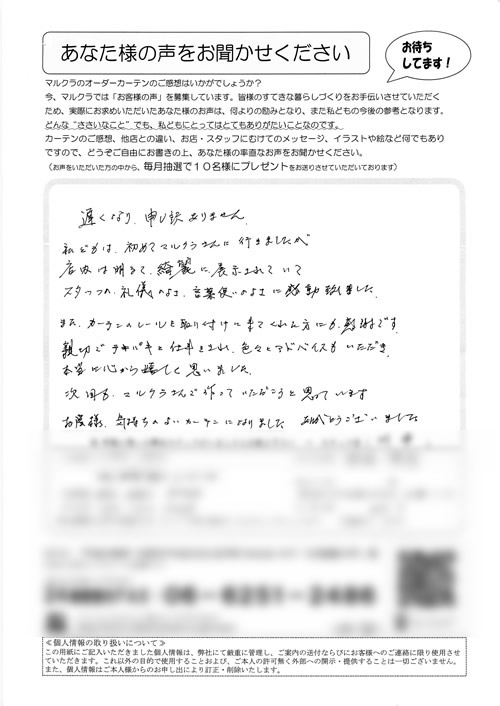 あなた様の声をお聞かせください
お待ち
してます！
マルクラのオーダーカーテンのご感想はいかがでしょうか？
今、マルクラでは「お客様の声」を募集しています。皆様のすてきな暮らしづくりをお手伝いさせていただく
ため、実際にお求めいただいたあなた様のお声は、何よりの励みとなり、また私どもの今後の参考となります。
どんな“ささいなこと”でも、私どもにとってはとてもありがたいことなのです。
カーテンのご感想、他店との違い、お店・スタッフにむけてのメッセージ、イラストや絵など何でもあり
ですので、どうぞご自由にお書きの上、あなた様の率直なお声をお聞かせください。
（お声をいただいた方の中から、毎月抽選で１０名様にプレゼントをお送りさせていただいております）
遅くなり、申し訳ありません。
私どもは、初めてマルクラさんに行きましたが
店内は明るく、綺麗に展示されていて
スタッフの礼儀のよさ、言葉使いのよさに感動致しました。
また、カーテンのレールを取り付けに来てくれた方にも感謝です。
親切でテキパキと仕事をされ、色々とアドバイスもいただき、
本当に心から嬉しく思いました。
次回も、マルクラさんで作っていただこうと思っています
お陰様、気持ちのよいカーテンになりました ありがとうございました
≪個人情報の取り扱いについて≫
この用紙にご記入いただきました個人情報は、弊社にて厳重に管理し、ご案内の送付ならびにお客様へのご連絡に限り使用させ
ていただきます。これ以外の目的で使用することおよび、ご本人の許可無く外部への開示・提供することは一切ございません。
また、個人情報はご本人様からのお申し出により訂正・削除いたします。